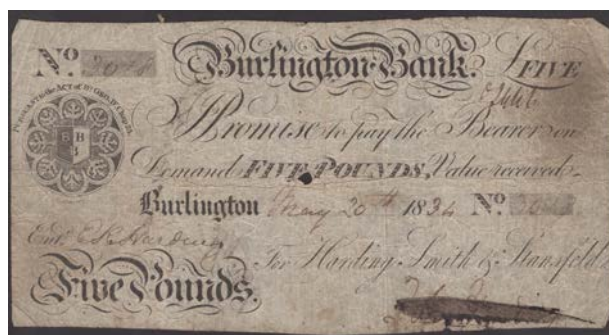 No. Burlington Bank. £FIVE
I Promise to pay the Bearer on
Demand FIVE POUNDS, Value received
Burlington May 20th 1834 No.
Entd. Harding
For Harding Smith & Stansfeld
Five Pounds.
BB